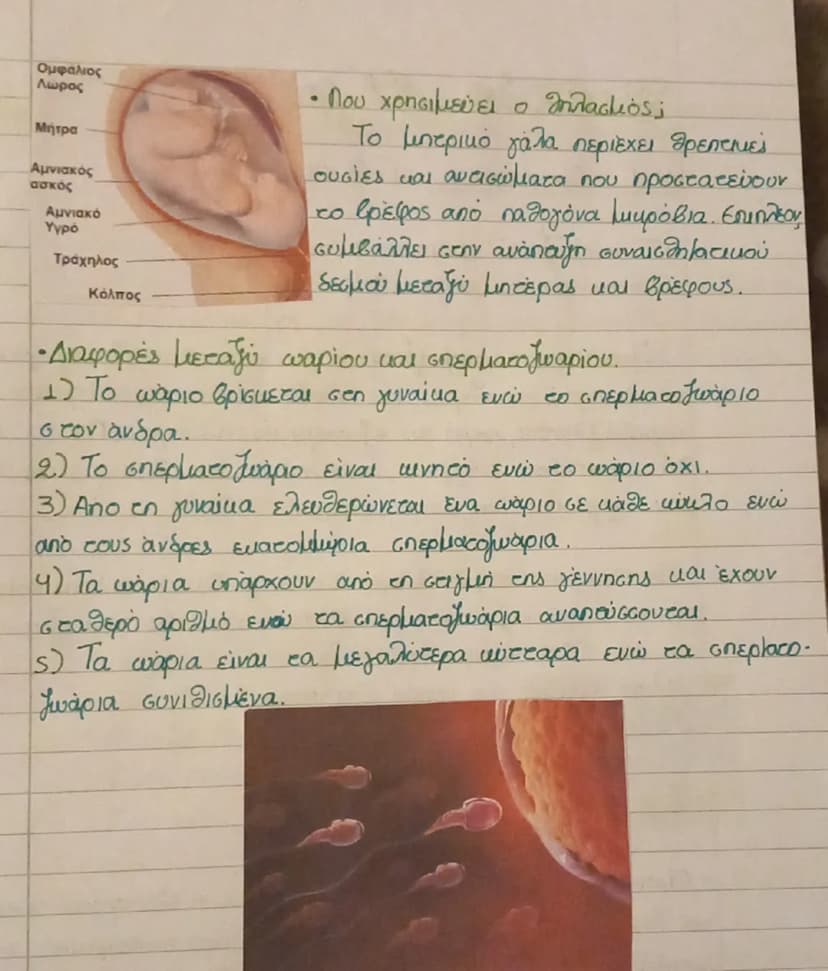 Ομφάλιος
Λώρος
Μήτρα
Αμνιακός
ασκός
Αμνιακό
Υγρό
Τράχηλος
Κόλπος
• Που χρησιμεύει ο θηλασμός;
Το μητρικό γάλα περιέχει θρεπτικές
ουσίες και αντισώματα που προστατεύουν
το βρέφος από παθογόνα μικρόβια. Επιπλέον,
συμβάλλει στην ανάπτυξη συναισθηματικού
δεσμού μεταξύ μητέρας και βρέφους.
• Διαφορές μεταξύ ωαρίου και σπερματοζωαρίου.
1) Το ωάριο βρίσκεται στη γυναίκα ενώ το σπερματοζωάριο
στον άνδρα.
2) Το σπερματοζωάριο είναι κινητό ενώ το ωάριο όχι.
3) Απο τη γυναίκα ελευθερώνεται ένα ωάριο σε κάθε κύκλο ενώ
από τους άνδρες εκατομμύρια σπερματοζωάρια.
4) Τα ωάρια υπάρχουν από τη στιγμή της γέννησης και έχουν
σταθερό αριθμό ενώ τα σπερματοζωάρια αναπτύσσονται.
5) Τα ωάρια είναι τα μεγαλύτερα κύτταρα ενώ τα σπερματο-
ζωάρια συνιθισμένα.